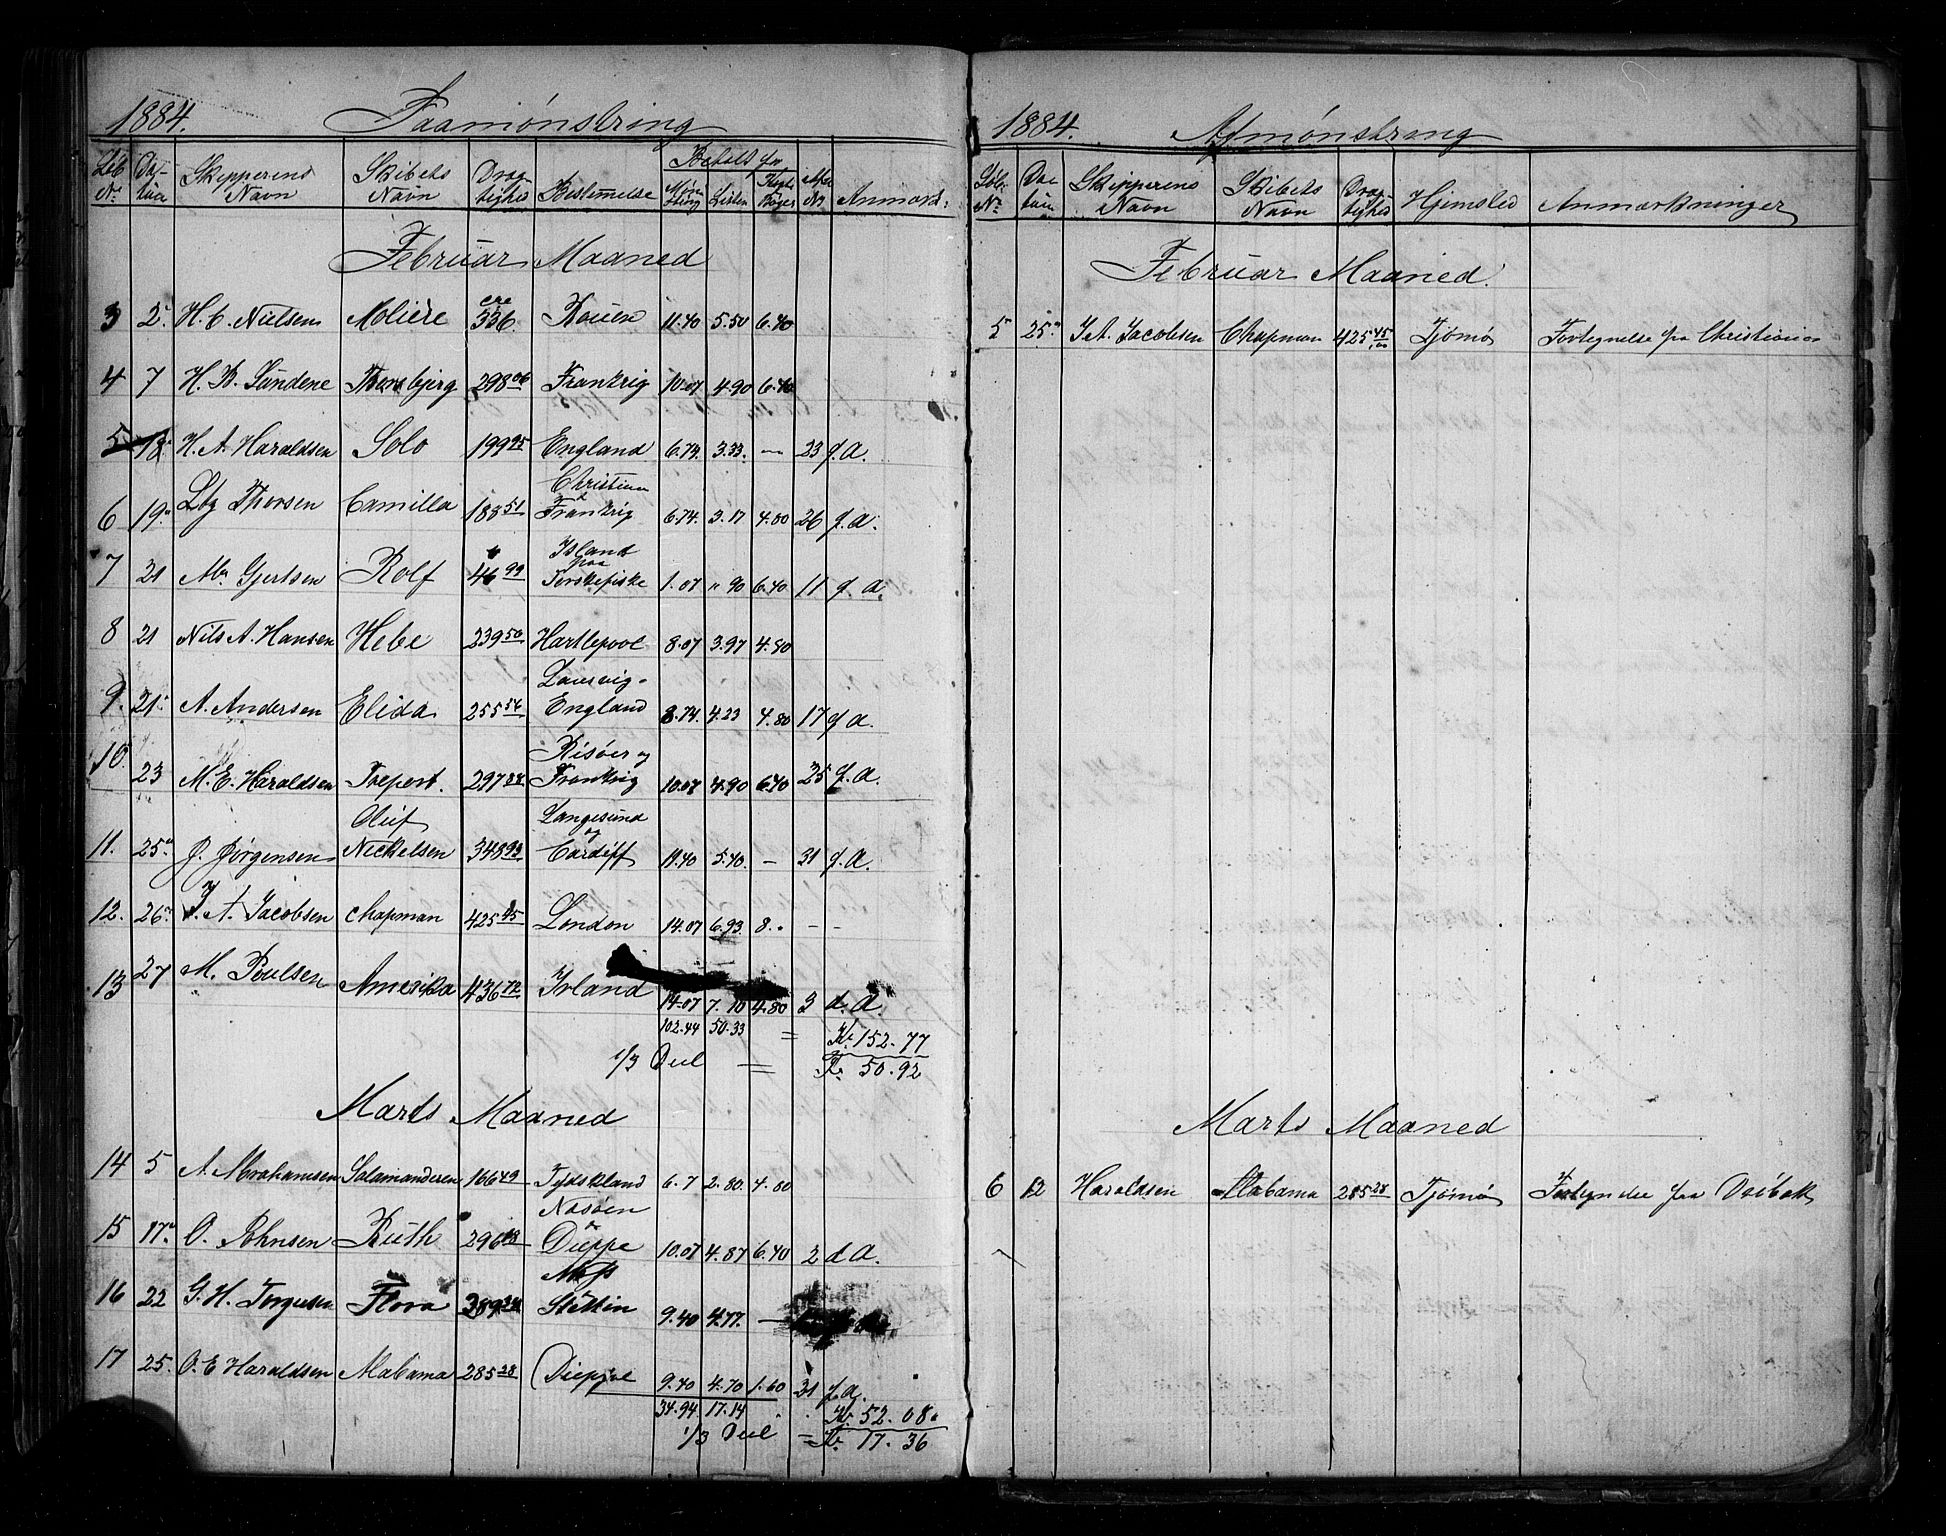 1884. Paamönstring
Löb No. Da- tum Skipperens Navn Skibets Navn Drag- tighed Bestemelse Betalt for Möns- tring Listen Bøger No Anmærk:
Februar Maaned
3 2. H. C. Nielsen Moliere cre 336 Rouen 11.40 5.50 6.40
4 7 H. B. Sundene Thorsbjerg 298 06 Frankrig 10.07 4.90 6.40
5 18. H. A. Haraldsen Solo 199 95 England 6.74. 3.33. — 23 f. A.
6 19. Thorsen Camilla 188 51 Christiania & Frankrig 6.74. 3.17 4.80 26 f. A.
7 21 Gjertsen Rolf 46 99 Island paa Torskefiske 1.07 " 90 6.40 11 f. A.
8 21 Nils A. Hansen Hebe 239 50 Hartlepool 8.07 3.97 4.80
9. 21. A. Andersen Elida 255 56 Laurvig - England 8.74. 4.23 4.80 17 f A.
10. 23 M. E. Haraldsen 297 Risöer og Frankrig 10.07 4.90 6.40 25 f. A.
11. 25. J. Jörgensen Oluf Nickelsen 348 93 Langesund og Cardiff 11.40 5.40. — 31 f. A.
12. 26. J. A. Jacobsen Chapman 425 45 London 14.07 6.93. 8. - - -
13 27 M. Poulsen Amerika 436 72 Irland 14.07 7.10 4.80 3 d. A.
102.44 50.33 = Kr. 152.77
1/3 Deel = Kr. 50.92
Marts Maaned
14 5 A. Abrahamsen Salamanderen 166 49 Tydskland 6.7 2.80. 4.80
15 17. O. Johnsen Ruth 296 Dieppe 10.07 4.87 6.40 2 d A.
16 22 G. H. Torgersen Flora 289 Stettin 9.40 4.77. —
17 25. O. E Haraldsen Alabama 285 28 Dieppe 9.40 4.70 1.60 31 f. A.
34.94 17.14 Kr. 52.08
1/3 Deel = Kr. 17.36
1884. Afmönstring
Löb. No. Da- tum Skipperens Navn Skibets Navn Drag- tighed Hjemsted Anmærkninger
Februar Maaned.
5 25. J. A. Jacobsen Chapman 425 45 Tjömö Fortegnelse fra Christiania
Marts Maaned
6 12 Haraldsen Alabama 285 28 Tjömö Fortegnelse fra Dröbak